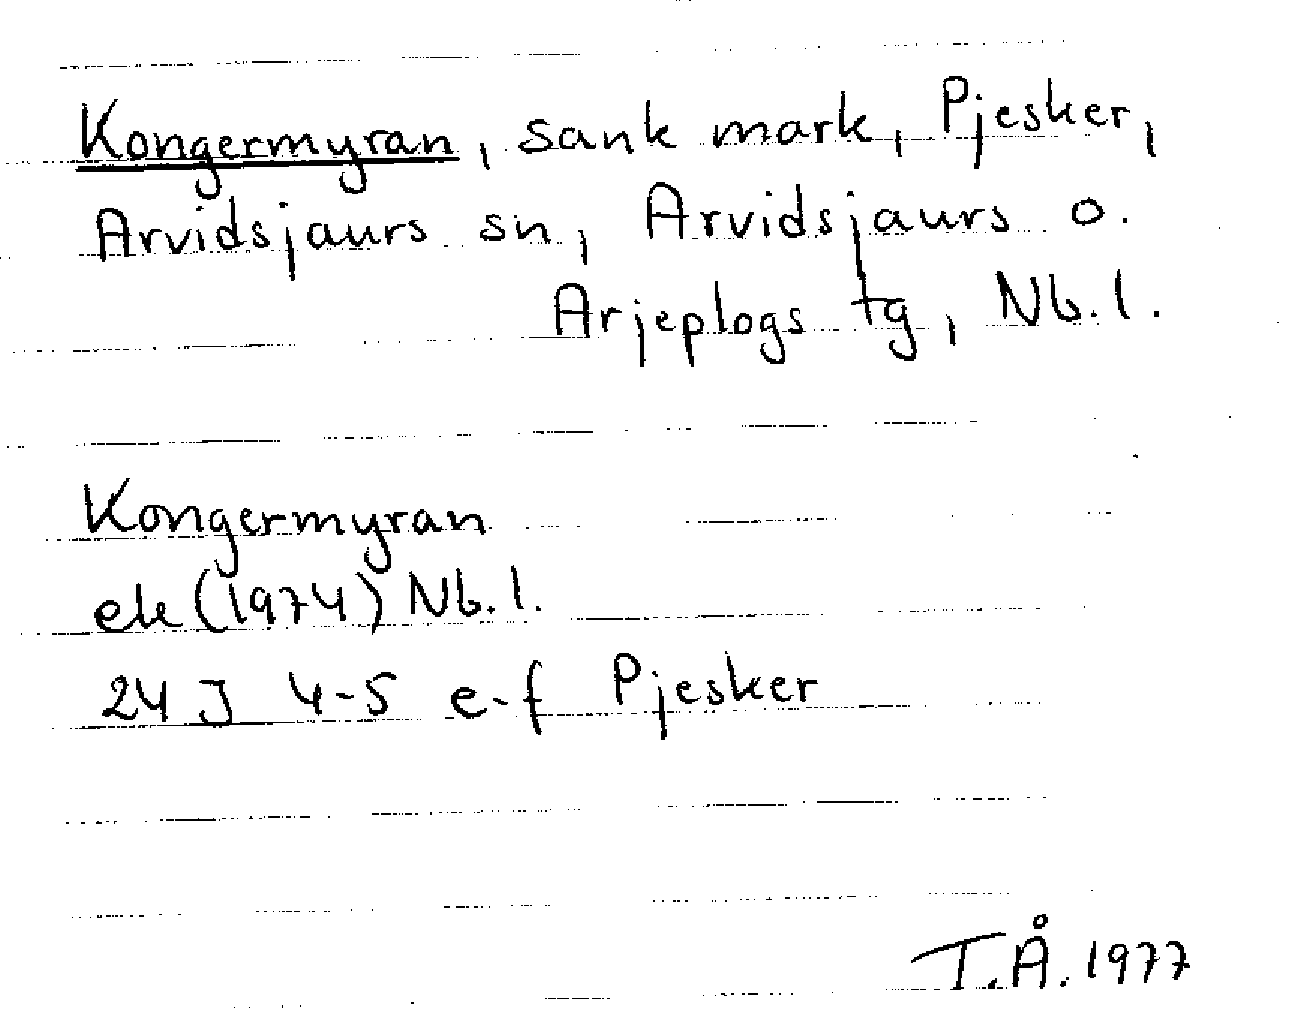 Kongermyran, sank mark, Pjesker,
Arvidsjaurs sn, Arvidsjaurs o.
Arjeplogs tg, Nb. l.
Kongermyran
ek (1974) Nb. l.
24 J 4-5 e-f Pjesker
T.Å. 1977